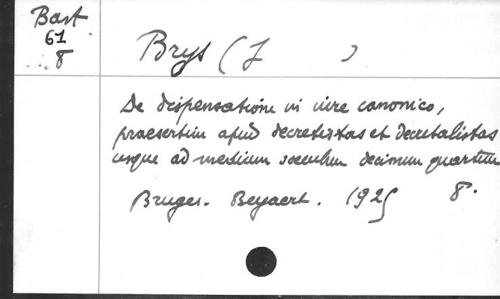 Bast
61
8
Brys (J )
De dispensatione in iure canonico,
praesertim apud decretistas et decretalistas
usque ad medium saeculum decimum quartum
Bruges. Beyaert. 1925 8.